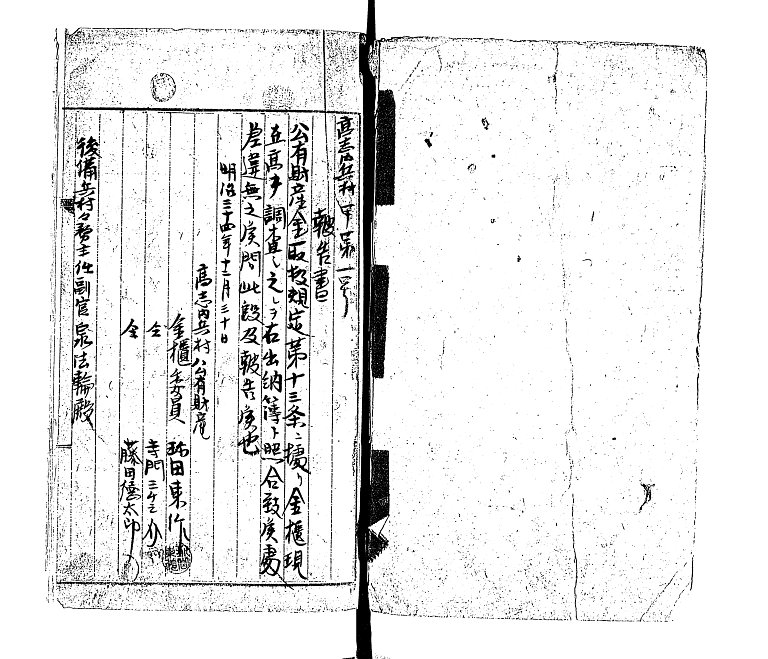 高志内兵村甲第一号
報告書
公有財産金取扱規定第十三条ニ據リ金櫃現
在高ヲ調査シ之レヲ右出納簿ト照合致候處
差違無之候間此段及報告候也
明治三十四年十二月三十日
高志内兵村公有財産
金櫃委員 田東作
仝 寺門三ケ之介
仝 藤田僖太郎
後備兵村々費主任副官泉法輪殿